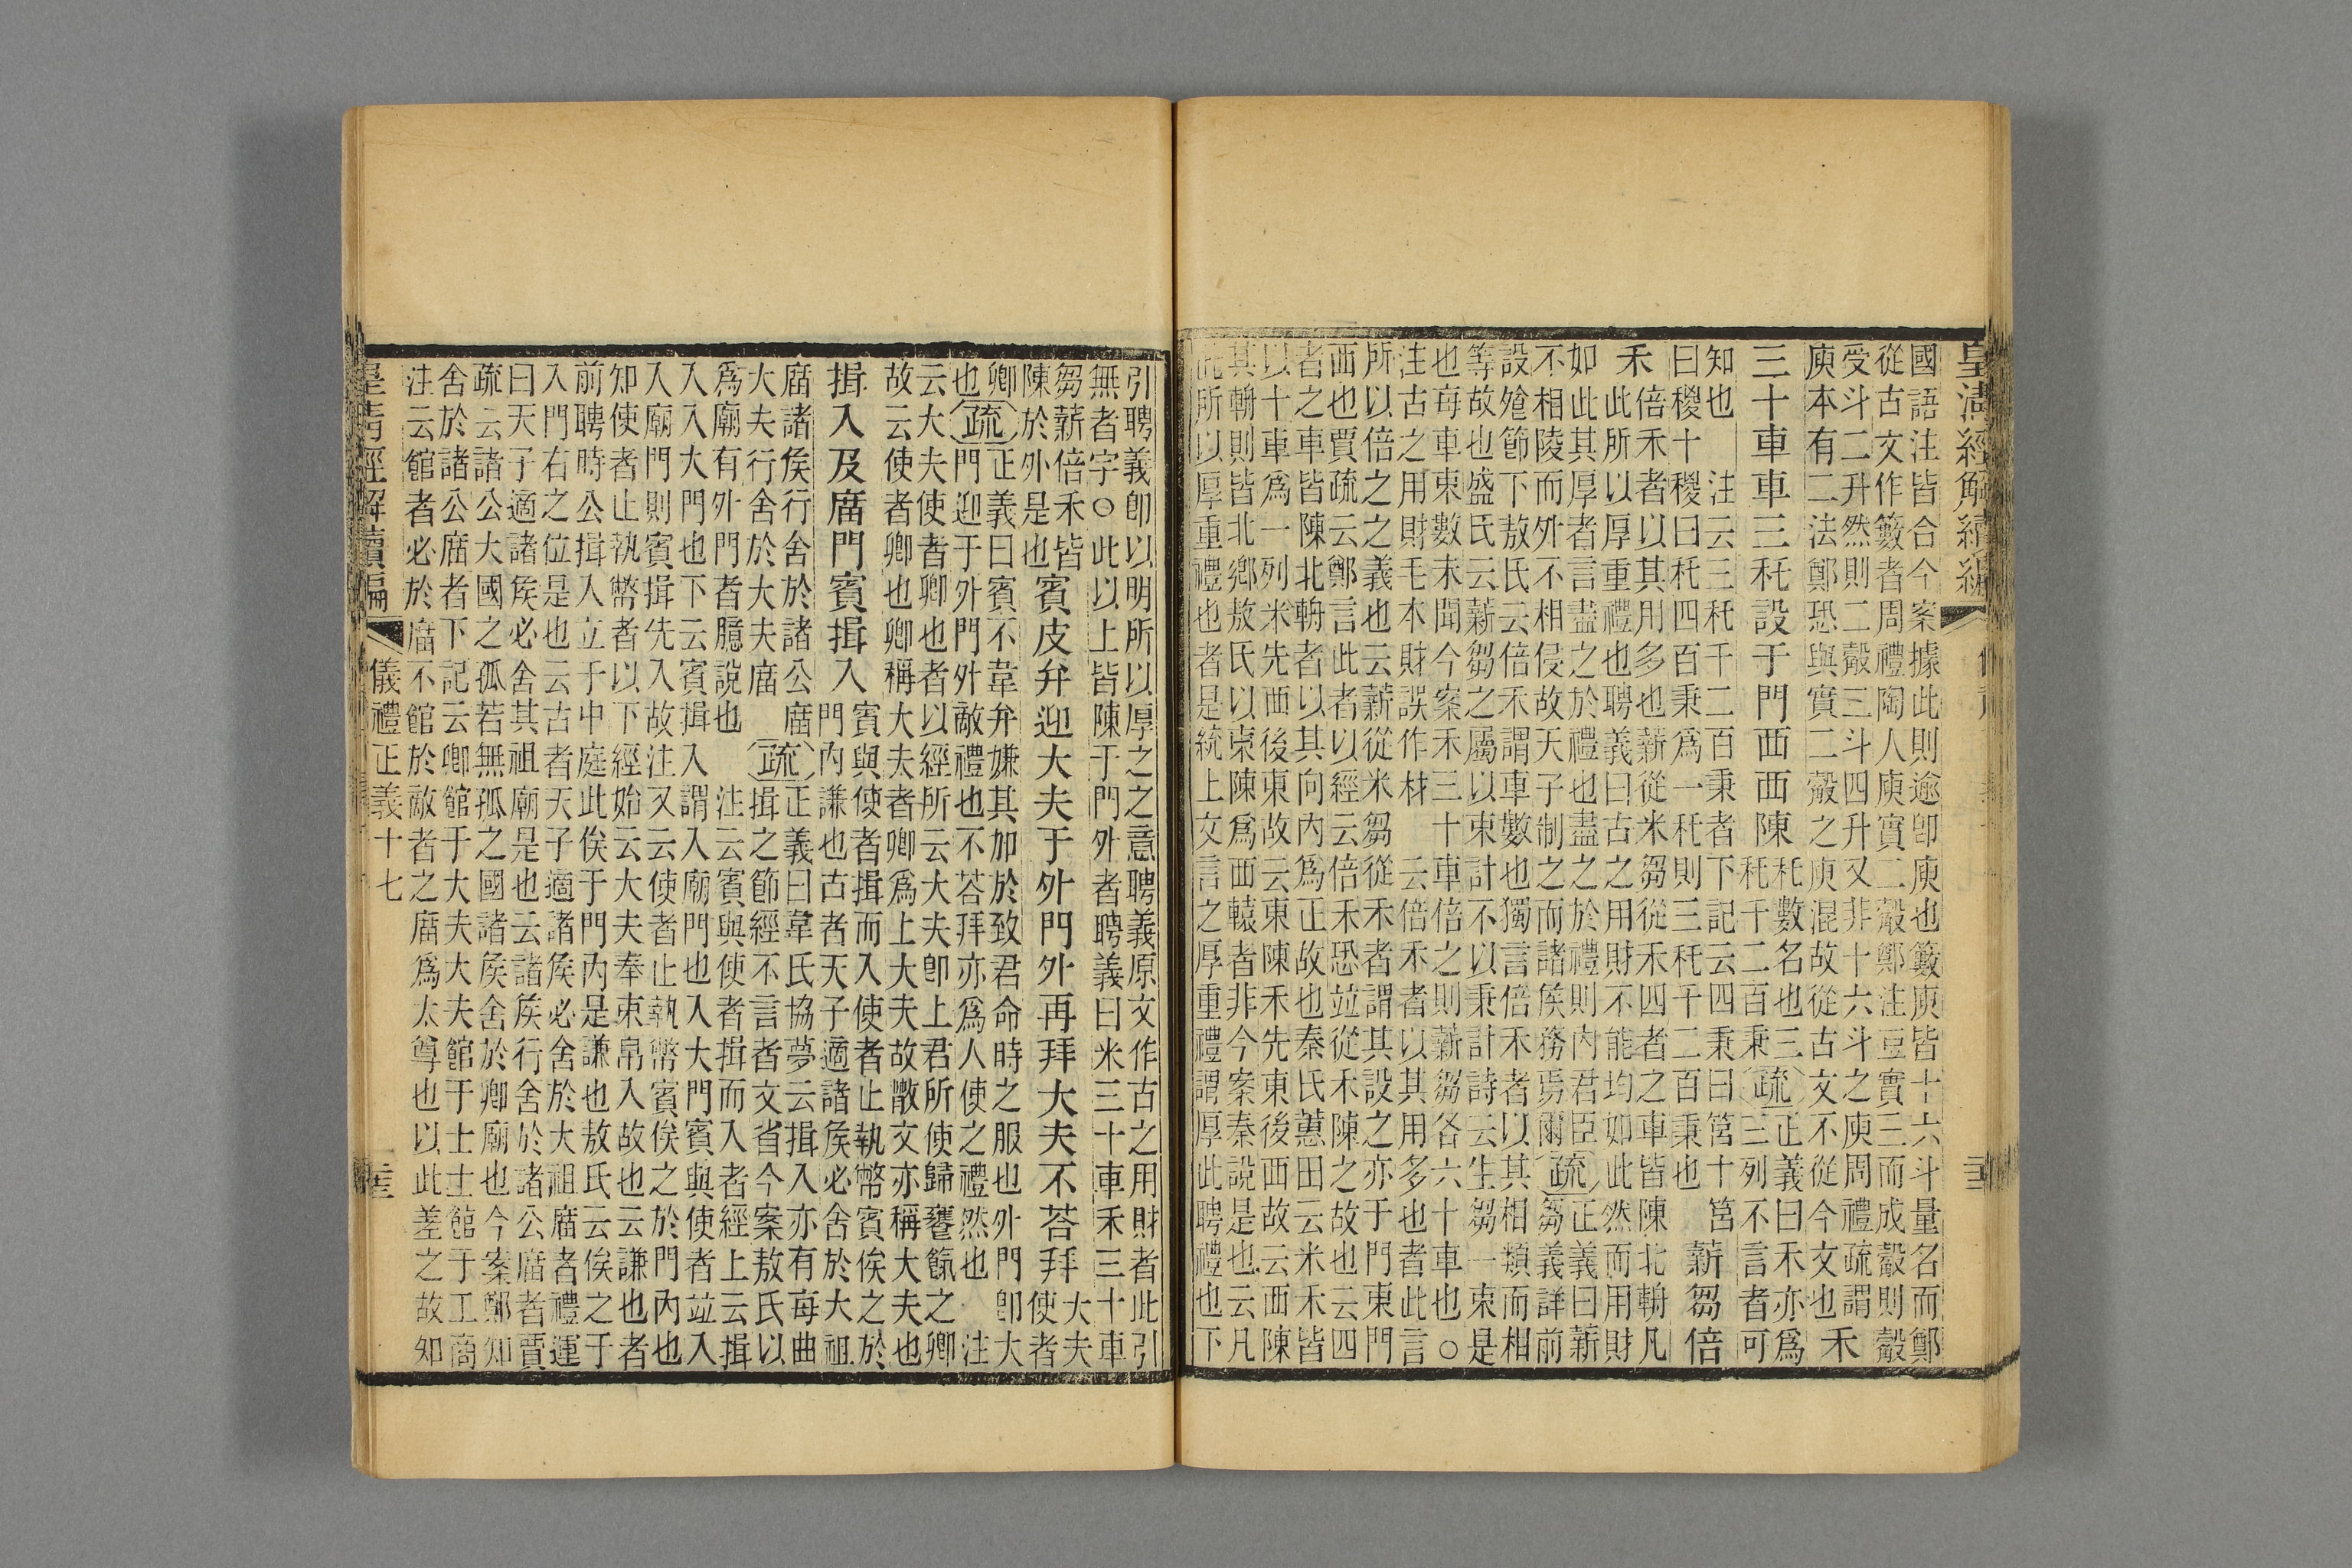 皇清經解續編
國語注皆合今案據此則逾卽庾也籔庾皆十六斗量名而鄭
從古文作籔者周禮陶人庾實二觳鄭注豆實三而成觳則觳
受斗二升然則二觳三斗四升又非十六斗之庾周禮疏謂
庾本有二法鄭恐與實二觳之庾混故從古文不從今文也 禾
三十車車三秅設于門西西陳 秅數名也三
秅千二百秉 疏 正義曰禾亦爲
三列不言者可
知也 注云三秅千二百秉者下記云四秉曰筥十筥
曰稯十稯曰秅四百秉爲一秅則三秅千二百秉也 薪芻倍
禾 倍禾者以其用多也薪從米芻從禾四者之車皆陳北輈凡
此所以厚重禮也聘義曰古之用財不能均如此然而用財
如此其厚者言盡之於禮也盡之於禮則內君臣
不相陵而外不相侵故天子制之而諸侯務焉爾 疏 正義曰薪
芻義詳前
設飧節下敖氏云倍禾謂車數也獨言倍禾者以其相類而相
等故也盛氏云薪芻之屬以束計不以秉計詩云生芻一束是
也每車束數未聞今案禾三十車倍之則薪芻各六十車也○
注古之用財毛本財誤作材 云倍禾者以其用多也者此言
所以倍之之義也云薪從米芻從禾者謂其設之亦于門東門
西也賈疏云鄭言此者以經云倍禾恐竝從禾陳之故也云四
者之車皆陳北輈者以其向內爲正故也秦氏蕙田云米禾皆
以十車爲一列米先西後東故云東陳禾先東後西故云西陳
其輈則皆北鄉敖氏以東陳爲西轅者非今案秦說是也云凡
此所以厚重禮也者是統上文言之厚重禮謂厚此聘禮也下
引聘義卽以明所以厚之之意聘義原文作古之用財者此引
無者字○此以上皆陳于門外者聘義曰米三十車禾三十車
芻薪倍禾皆
陳於外是也 賓皮弁迎大夫于外門外再拜大夫不荅拜 大夫
使者
卿也 疏 正義曰賓不韋弁嫌其加於致君命時之服也外門卽大
門迎于外門外敵禮也不荅拜亦爲人使之禮然也 注
云大夫使者卿也者以經所云大夫卽上君所使歸饔餼之卿
故云使者卿也卿稱大夫者卿爲上大夫故散文亦稱大夫也
揖入及庿門賓揖入 賓與使者揖而入使者止執幣賓俟之於
門內謙也古者天子適諸侯必舍於大祖
庿諸侯行舍於諸公庿
大夫行舍於大夫庿 疏 正義曰韋氏協夢云揖入亦有每曲
揖之節經不言者文省今案敖氏以
爲廟有外門者臆說也 注云賓與使者揖而入者經上云揖
入入大門也下云賓揖入謂入廟門也入大門賓與使者竝入
入廟門則賓揖先入故注又云使者止執幣賓俟之於門內也
知使者止執幣者以下經始云大夫奉束帛入故也云謙也者
前聘時公揖入立于中庭此俟于門內是謙也敖氏云俟之于
入門右之位是也云古者天子適諸侯必舍於大祖庿者禮運
曰天子適諸侯必舍其祖廟是也云諸侯行舍於諸公庿者賈
疏云諸公大國之孤若無孤之國諸侯舍於卿廟也今案鄭知
舍於諸公庿者下記云卿館于大夫大夫館于士士館于工商
注云館者必於庿不館於敵者之庿爲太尊也以此差之故知
皇清經解續編 儀禮正義十七